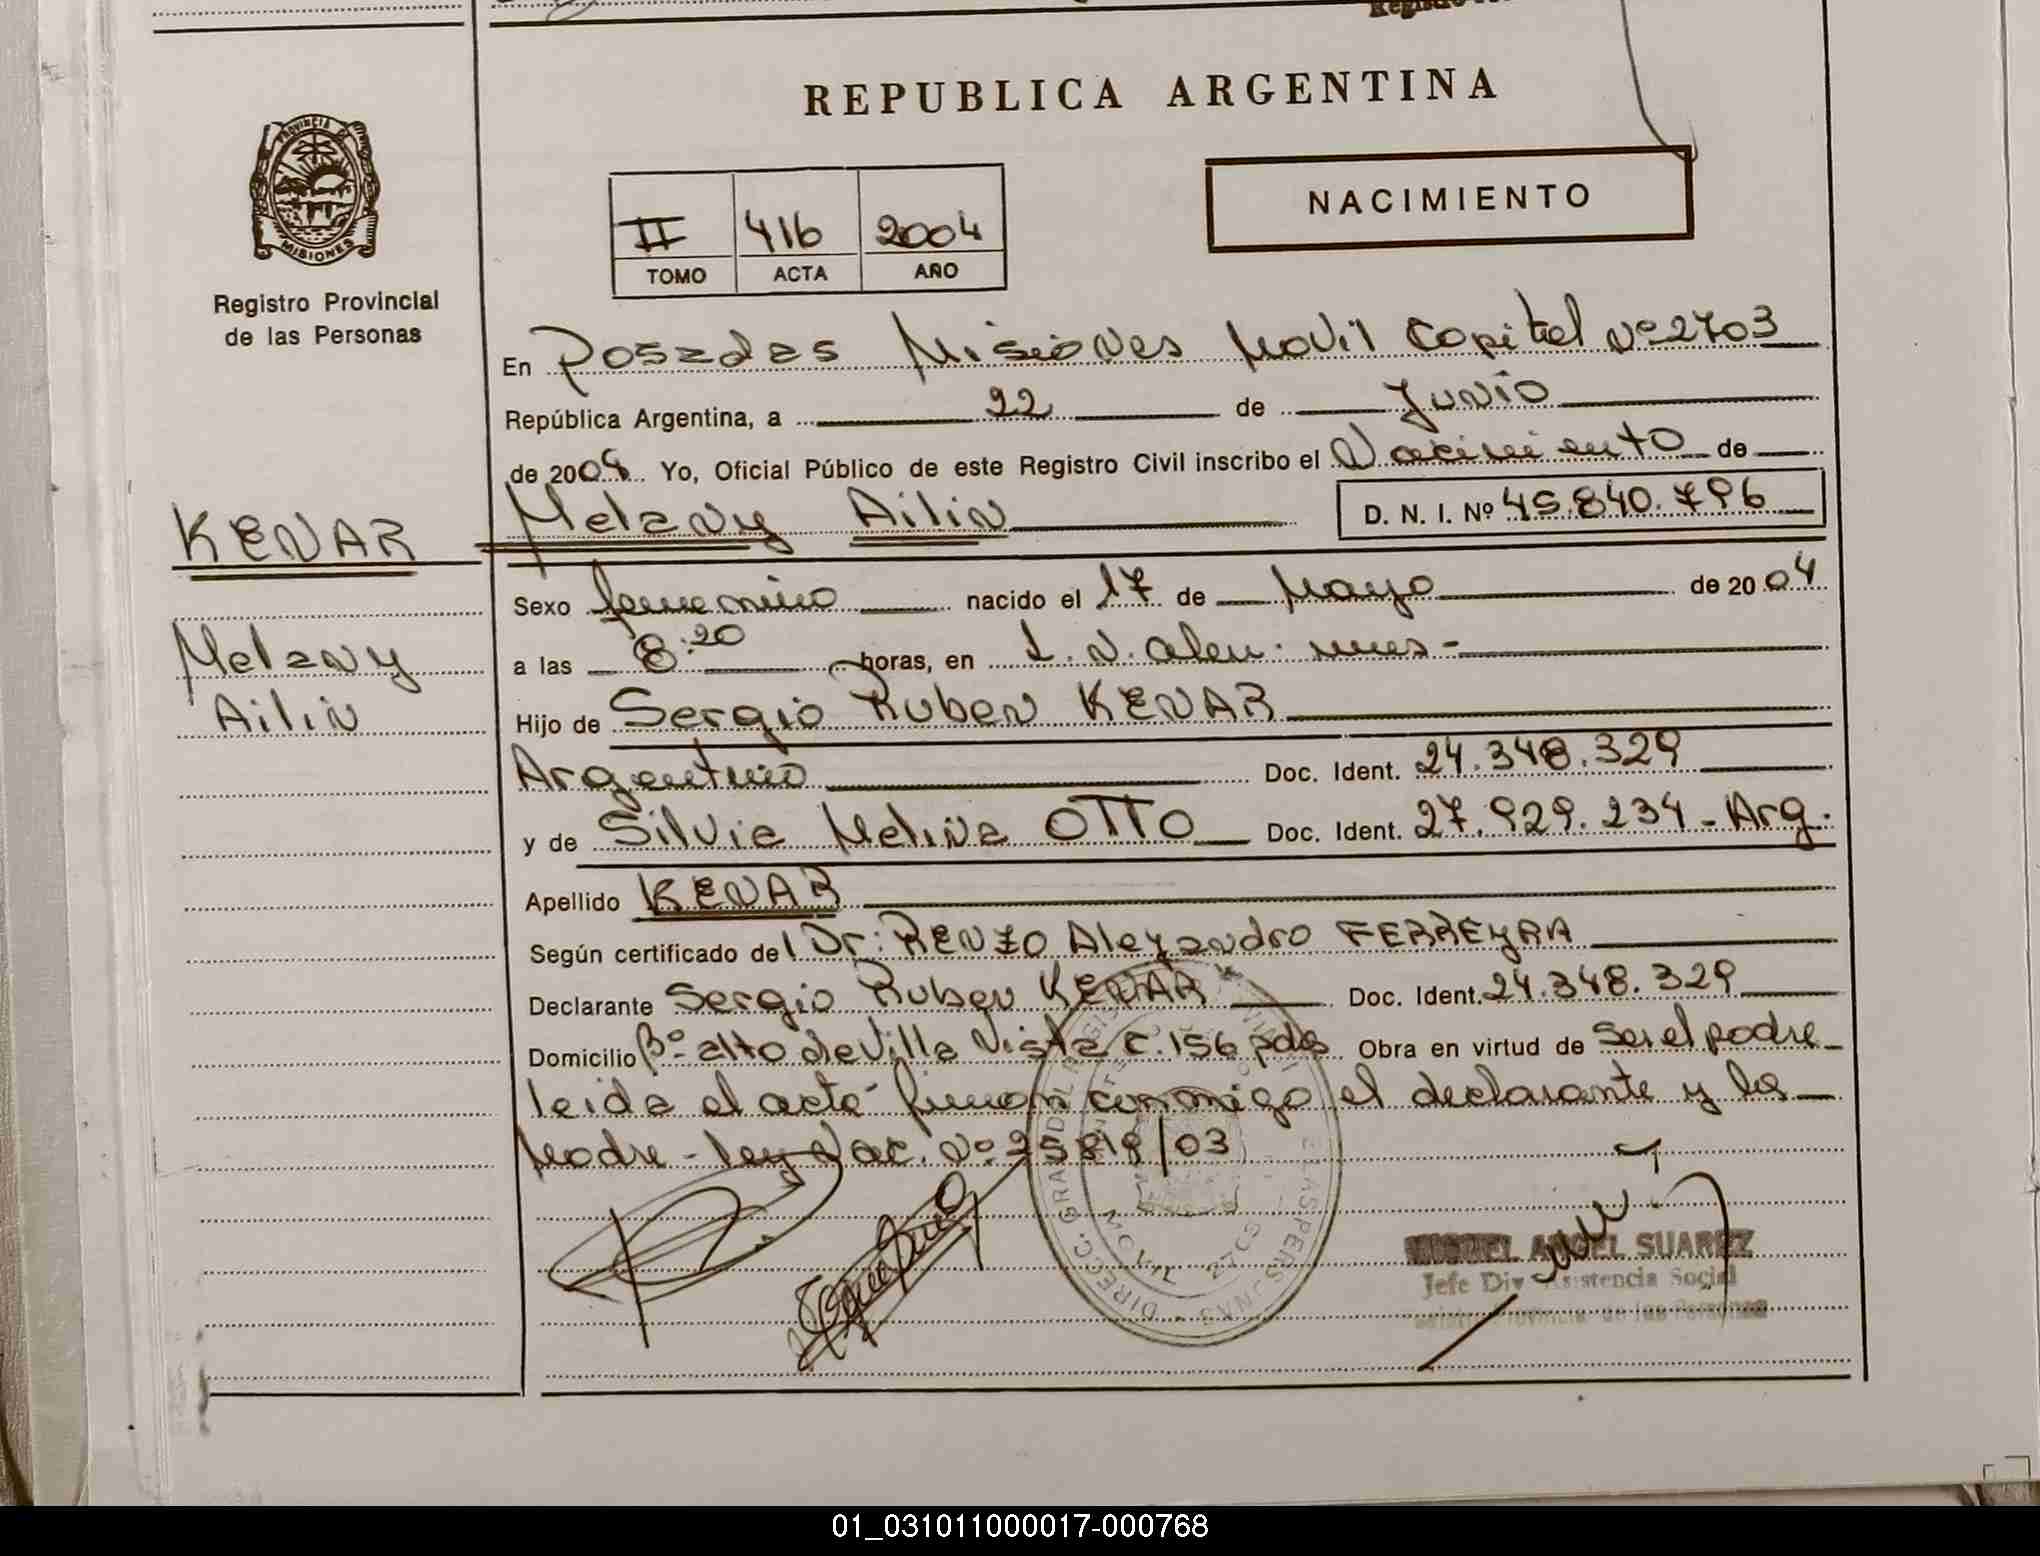 REPUBLICA ARGENTINA
NACIMIENTO
PROVINCIA DE
MISIONES
Registro Provincial
de las Personas
II 416 2004
TOMO ACTA AÑO
En Posadas Misiones Movil Capital Nº 2703
República Argentina, a 22 de Junio
de 2004 Yo, Oficial Público de este Registro Civil inscribo el Nacimiento de
KENAR Melany Ailin D. N. I. Nº 45.840.796
Sexo femenino nacido el 17 de Mayo de 2004
Melany
Ailin
a las 8:20 horas, en L. N. Alem. mnes-
Hijo de Sergio Ruben KENAR
Argentino Doc. Ident. 24.348.329
y de Silvia Melina OTTO Doc. Ident. 27.929.234 - Arg.
Apellido KENAR
Según certificado del Dr: RENZO Alejandro FERREYRA
Declarante Sergio Ruben KENAR Doc. Ident. 24.348.329
Domicilio Bº alto de Villa Vista C. 156 pdas Obra en virtud de Ser el padre
leida el acta firman conmigo el declarante y la
Madre - Ley Nac. Nº 25818/03
MOVIL 2703
MIGUEL ANGEL SUAREZ
Jefe Div Asistencia Social
de las Personas
01_031011000017-000768